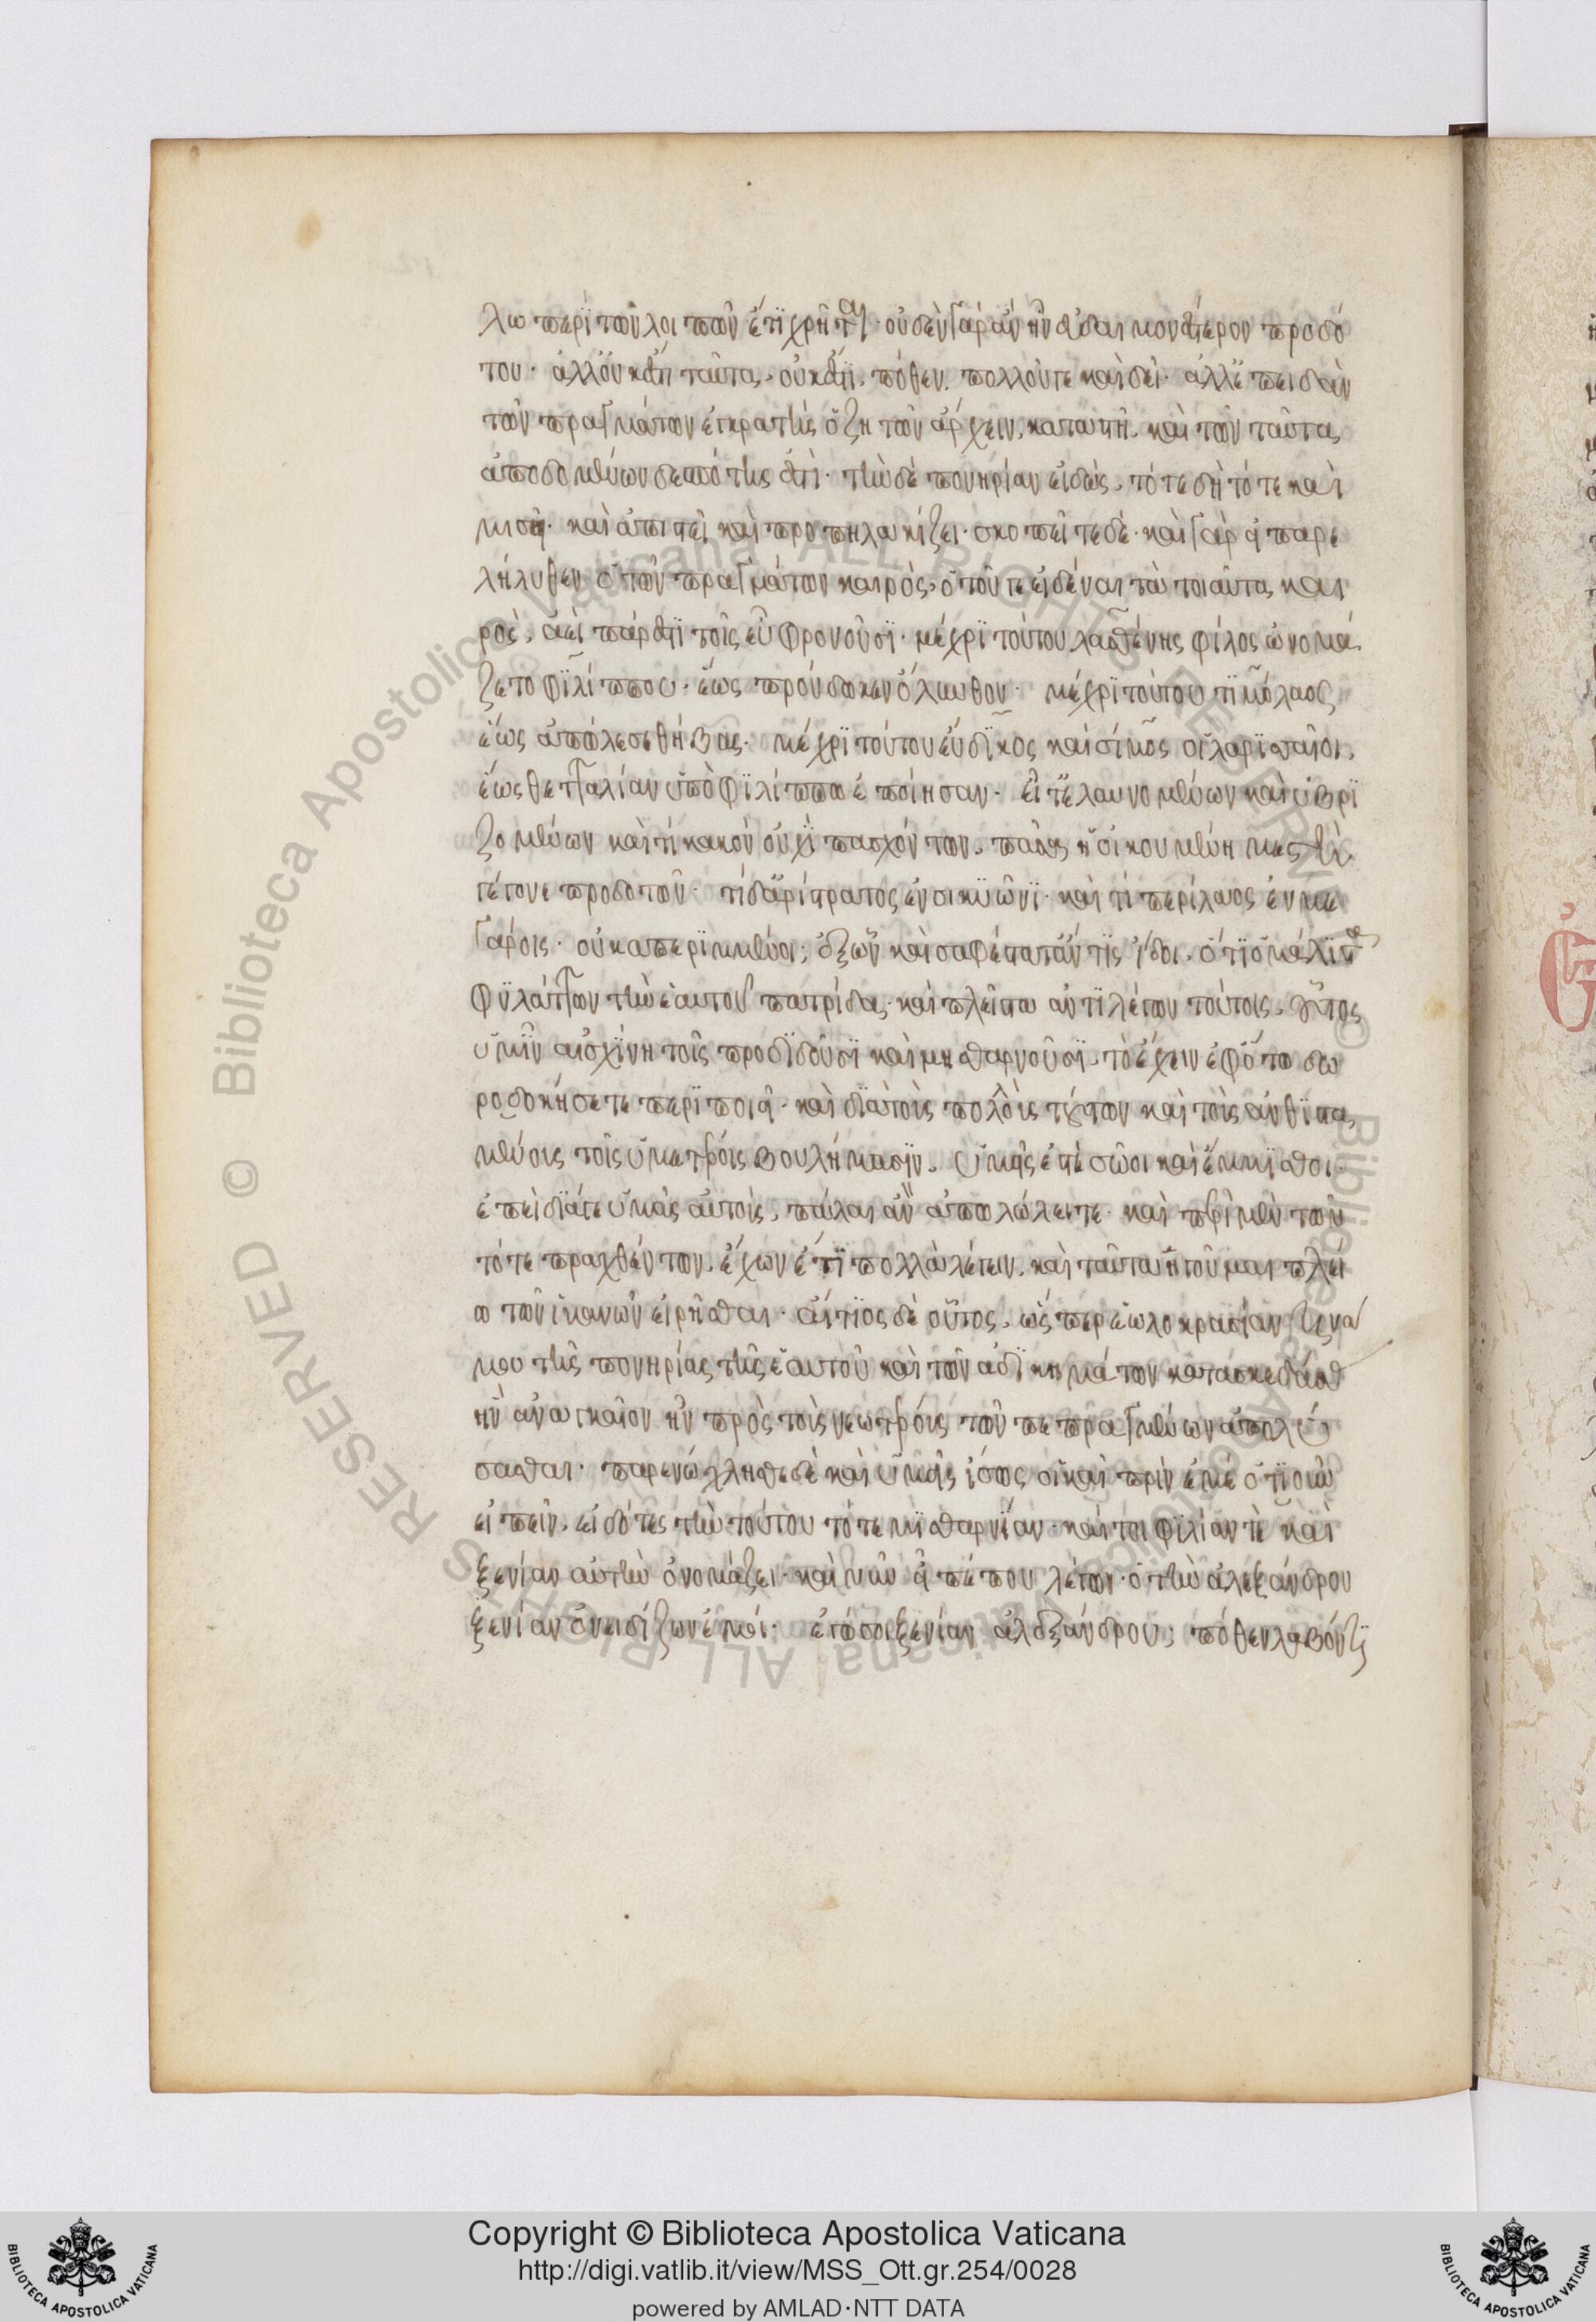 λω περὶ τῶν λοιπῶν ἔτι χρῆται· οὐδὲν γὰρ ἂν ἦν εὐδαιμονέστερον προδό
του· ἀλλ' οὐκ ἔστι ταῦτα, οὐκ ἔστι, πόθεν, πολλοῦ γε καὶ δεῖ· ἀλλ' ἐπειδὰν
τῶν πραγμάτων ἐγκρατὴς ὁ ζητῶν ἄρχειν, καταστῆ, καὶ τῶν ταῦτα
ἀποδομένων δεσπότης ἐστί· τὴν δὲ πονηρίαν εἰδὼς, τότε δὴ τότε καὶ
μισεῖ· καὶ ἀπιστεῖ καὶ προπηλακίζει· σκοπεῖτε δὲ· καὶ γὰρ εἰ παρε
λήλυθεν ὁ τῶν πραγμάτων καιρὸς, ὁ τοῦ γε εἰδέναι τὰ τοιαῦτα και
ρὸς, ἀεὶ πάρεστι τοῖς εὖ φρονοῦσι· μέχρι τούτου λασθένης φίλος ὠνομά
ζετο φιλίππου· ἕως προύδωκεν ὄλυνθον· μέχρι τούτου τιμόλαος
ἕως ἀπώλεσε θήβας· μέχρι τούτου εὔδικος καὶ σῖμος οἱ λαρισαῖοι,
ἕως θετταλίαν ὑπὸ φιλίππω ἐποίησαν· εἶτ' ἐλαυνομένων καὶ ὑβρι
ζομένων καὶ τί κακὸν οὐχὶ πασχόντων, πᾶσα ἡ οἰκουμένη μεστὴ
γέγονε προδοτῶν· τί δ' ἀρίστρατος ἐν σικυῶνι· καὶ τί περίλαος ἐν με
γάροις· οὐκ ἀπερριμμένοι; ἐξ ὧν καὶ σαφέστατ' ἄν τις ἴδοι, ὅτι ὁ μάλιστα
φυλάττων τὴν ἑαυτοῦ πατρίδα· καὶ πλεῖστα ἀντιλέγων τούτοις, οὗτος
ὑμῖν αἰσχίνη τοῖς προδιδοῦσι καὶ μισθαρνοῦσι, τὸ ἔχειν ἐφ' ὅτω δω
ροδοκήσετε περιποιεῖ· καὶ διὰ τοὺς πολλοὺς τούτων καὶ τοὺς ἀνθιστα
μένους τοῖς ὑμετέροις βουλήμασιν, ὑμεῖς ἐστὲ σῶοι καὶ ἔμμισθοι·
ἐπεὶ διά γε ὑμᾶς αὐτοὺς, πάλαι ἂν ἀπολώλειτε· καὶ περὶ μὲν τῶν
τότε πραχθέντων, ἔχων ἔτι πολλὰ λέγειν, καὶ ταῦτα ἡγοῦμαι πλεί
ω τῶν ἱκανῶν εἰρῆσθαι· αἴτιος δὲ οὗτος, ὥσπερ ἑωλοκρασίαν τινά
μου τῆς πονηρίας τῆς ἑαυτοῦ καὶ τῶν ἀδικημάτων κατασκεδάσας
ἣν ἀναγκαῖον ἦν πρὸς τοὺς νεωτέρους τῶν πεπραγμένων ἀπολύ
σασθαι· παρενώχλησθε δὲ καὶ ὑμεῖς ἴσως οἱ καὶ πρὶν ἐμὲ ὁτιοῦν
εἰπεῖν, εἰδότες τὴν τούτου τότε μισθαρνίαν· καί τοι φιλίαν τὲ καὶ
ξενίαν αὐτὴν ὀνομάζει· καὶ νῦν εἶπέ που λέγων· ὁ τὴν ἀλεξάνδρου
ξενίαν ὀνειδίζων ἐμοί· ἐγώ σοι ξενίαν ἀλεξάνδρου; πόθεν λαβόντι